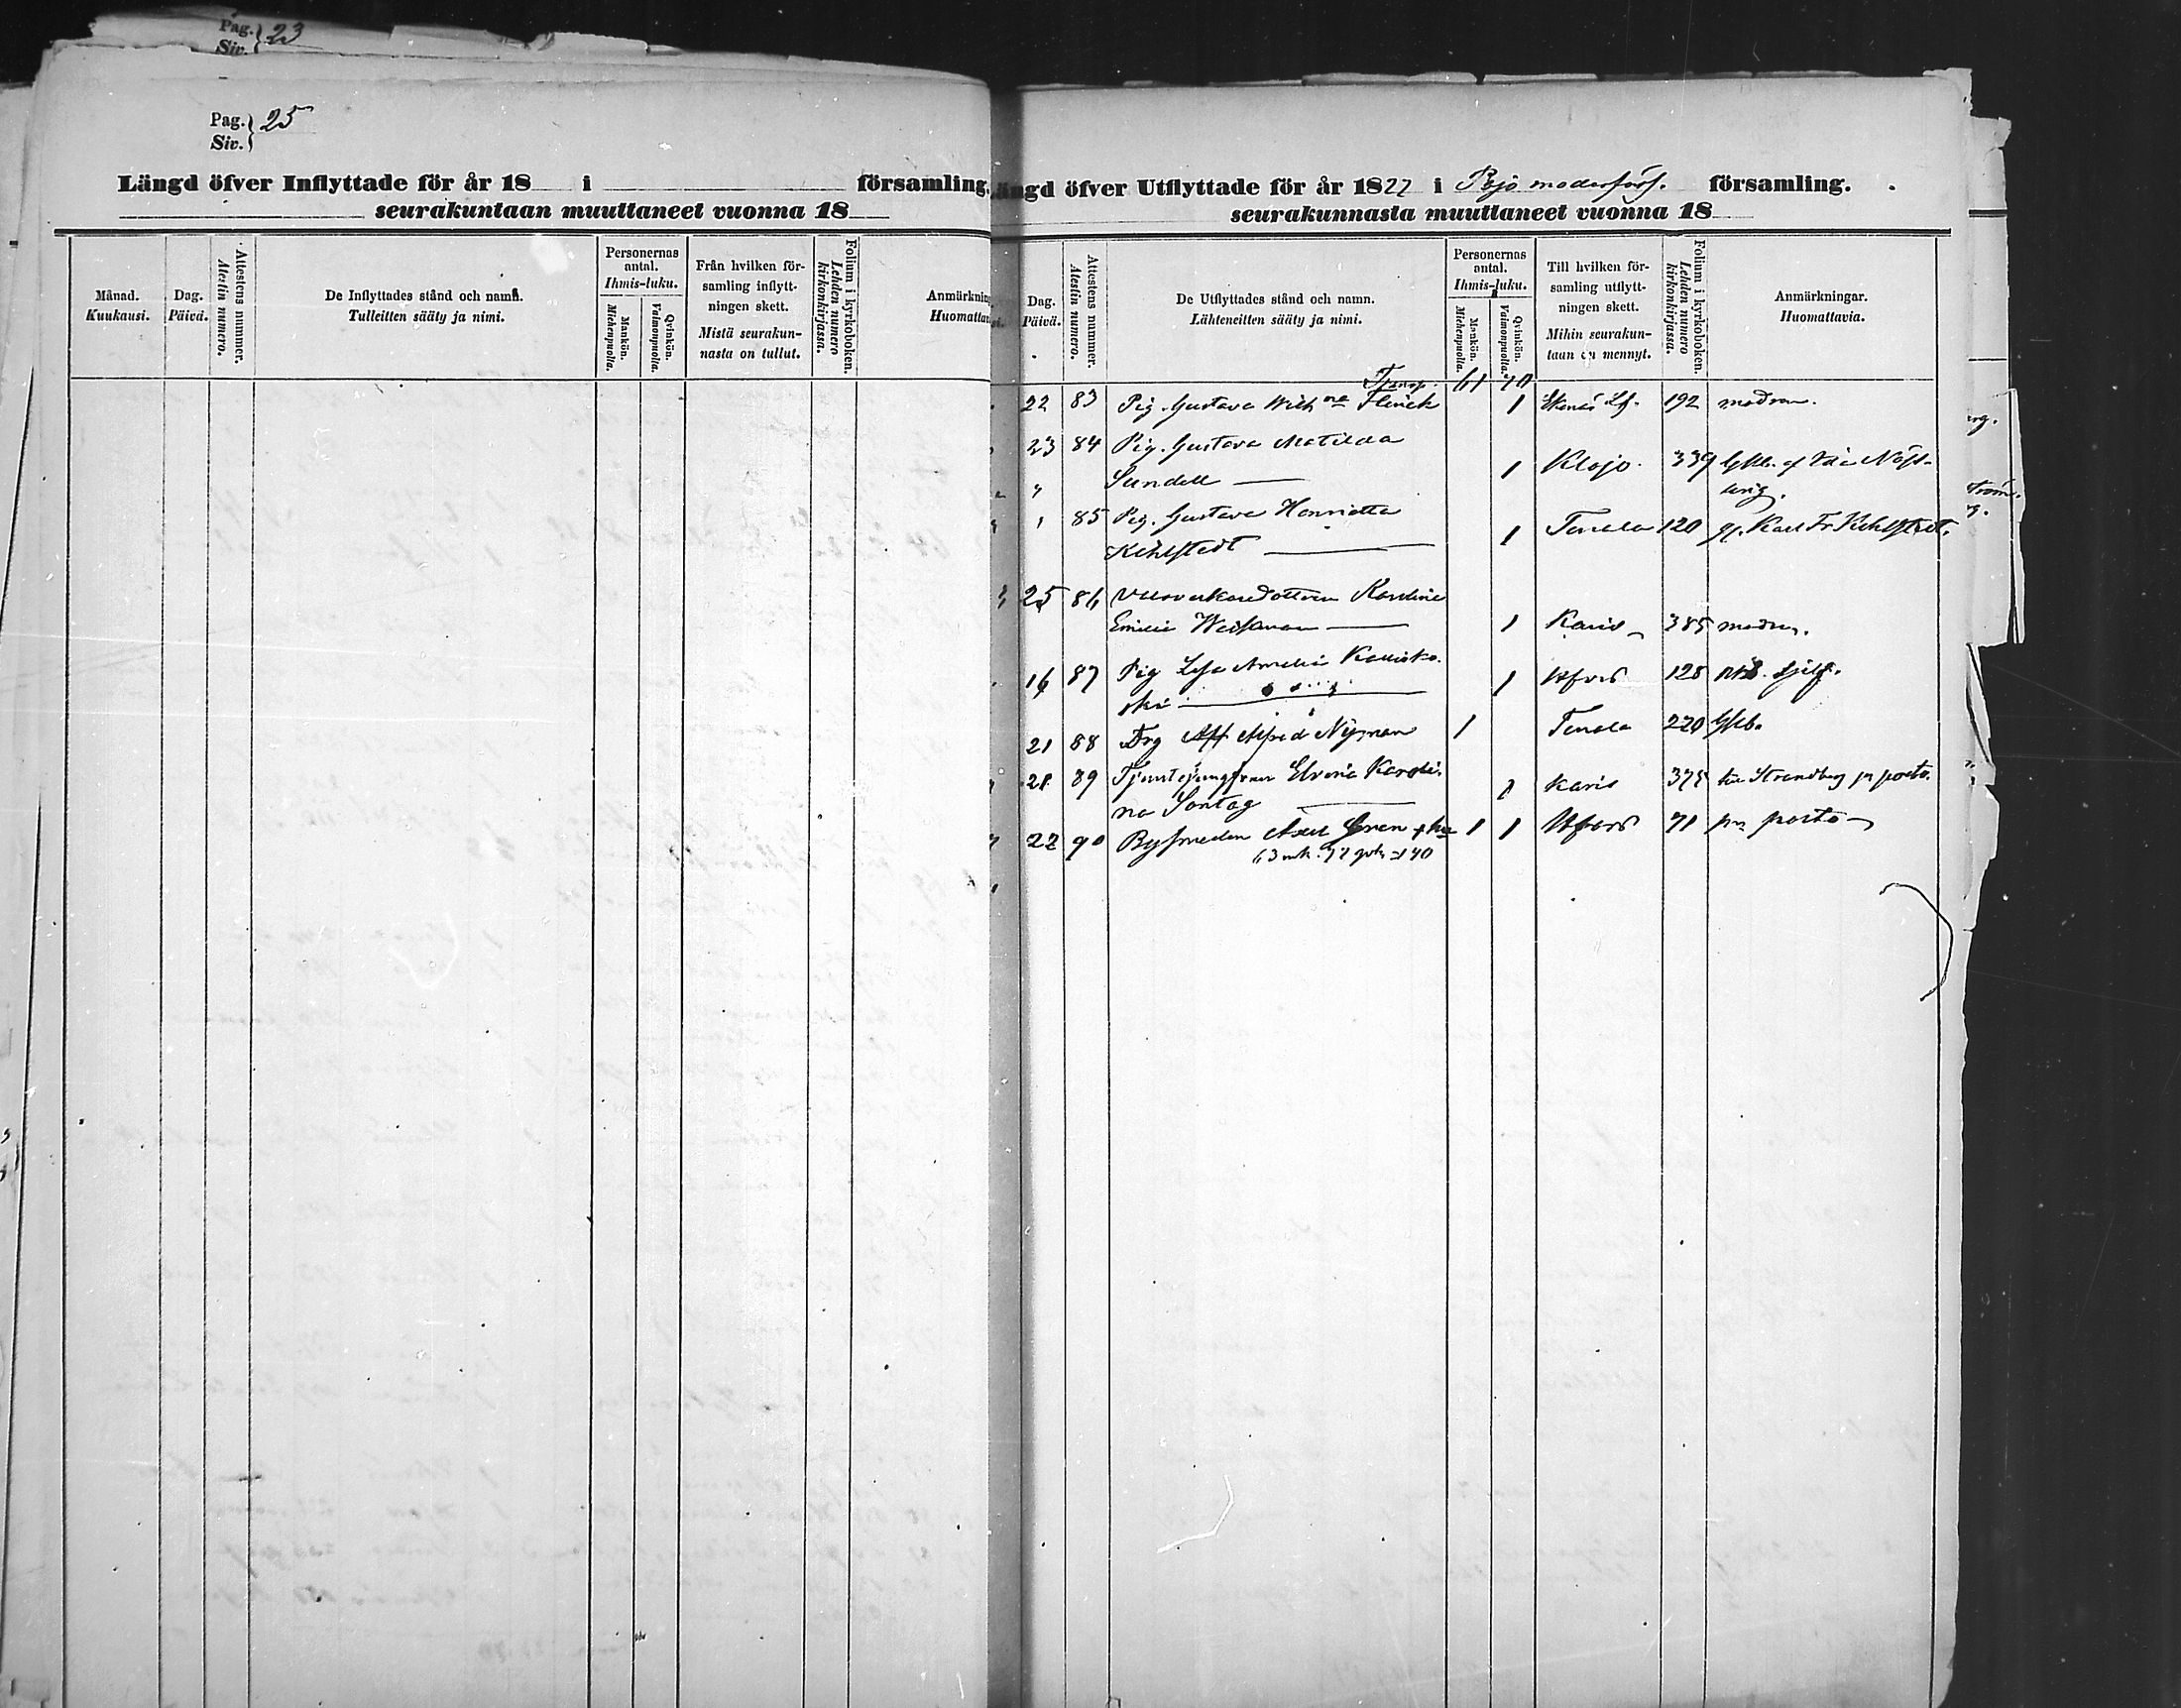 Pag. 23
Siv.
Pag. 25
Siv.
Längd öfver Inflyttade för år 18 i församling.
seurakuntaan muuttaneet vuonna 18
Månad.
Kuukausi.
Dag.
Päivä.
Attestens nummer.
Atestin numero.
De Inflyttades stånd och namn.
Tulleitten sääty ja nimi.
Personernas
antal.
Ihmis-luku.
Mankön.
Miehenpuolia.
Qvinkön.
Vaimonpuolia.
Från hvilken för-
samling inflytt-
ningen skett.
Mistä seurakun-
nasta on tullut.
Folium i kyrkoboken.
Lehden numero
kirkonkirjassa.
Anmärknin
Huomattav
ängd öfver Utflyttade för år 1877 i Pojo moderförs. församling.
seurakunnasta muuttaneet vuonna 18
Dag.
Päivä.
Attestens nummer.
Atestin numero.
De Utflyttades stånd och namn.
Lähteneitten sääty ja nimi.
Personernas
antal.
Ihmis-luku.
Mankön.
Miehenpuolia.
Qvinkön.
Vaimonpuolia.
Till hvilken för-
samling utflytt-
ningen skett.
Mihin seurakun-
taan on mennyt.
Folium i kyrkoboken.
Lehden numero
kirkonkirjassa.
Anmärkningar.
Huomattavia.
Transp. 61 70
22 83 Pig. Gustava Wilhna Flinck 1 Ekenäs Lf. 192 modren.
23 84 Pig. Gustava Matilda
Sundell — 1 Klojo. 339
85 Pig. Gustava Henrietta
Kihlstedt — 1 Tenala 120 gf. Karl Fr Kihlstedt.
25 86 Karolina
Emilia Weckman — 1 Karis 385 modren.
16 87 Pig Lisa Amalia Kallisko-
ski — 1 Hfors 128 sjelf.
21 88 Drg Alfred Nyman 1 Tenala 220 Gkb.
28 89 Tjenstejungfrun Elvira Karoli-
na Sontag — 1 Karis 375 Strandberg pr posto.
22 90 Bysmeden Axel Gren + hu 1 1 Hfors 71 pr posto
63 mk. 77 qvk = 140